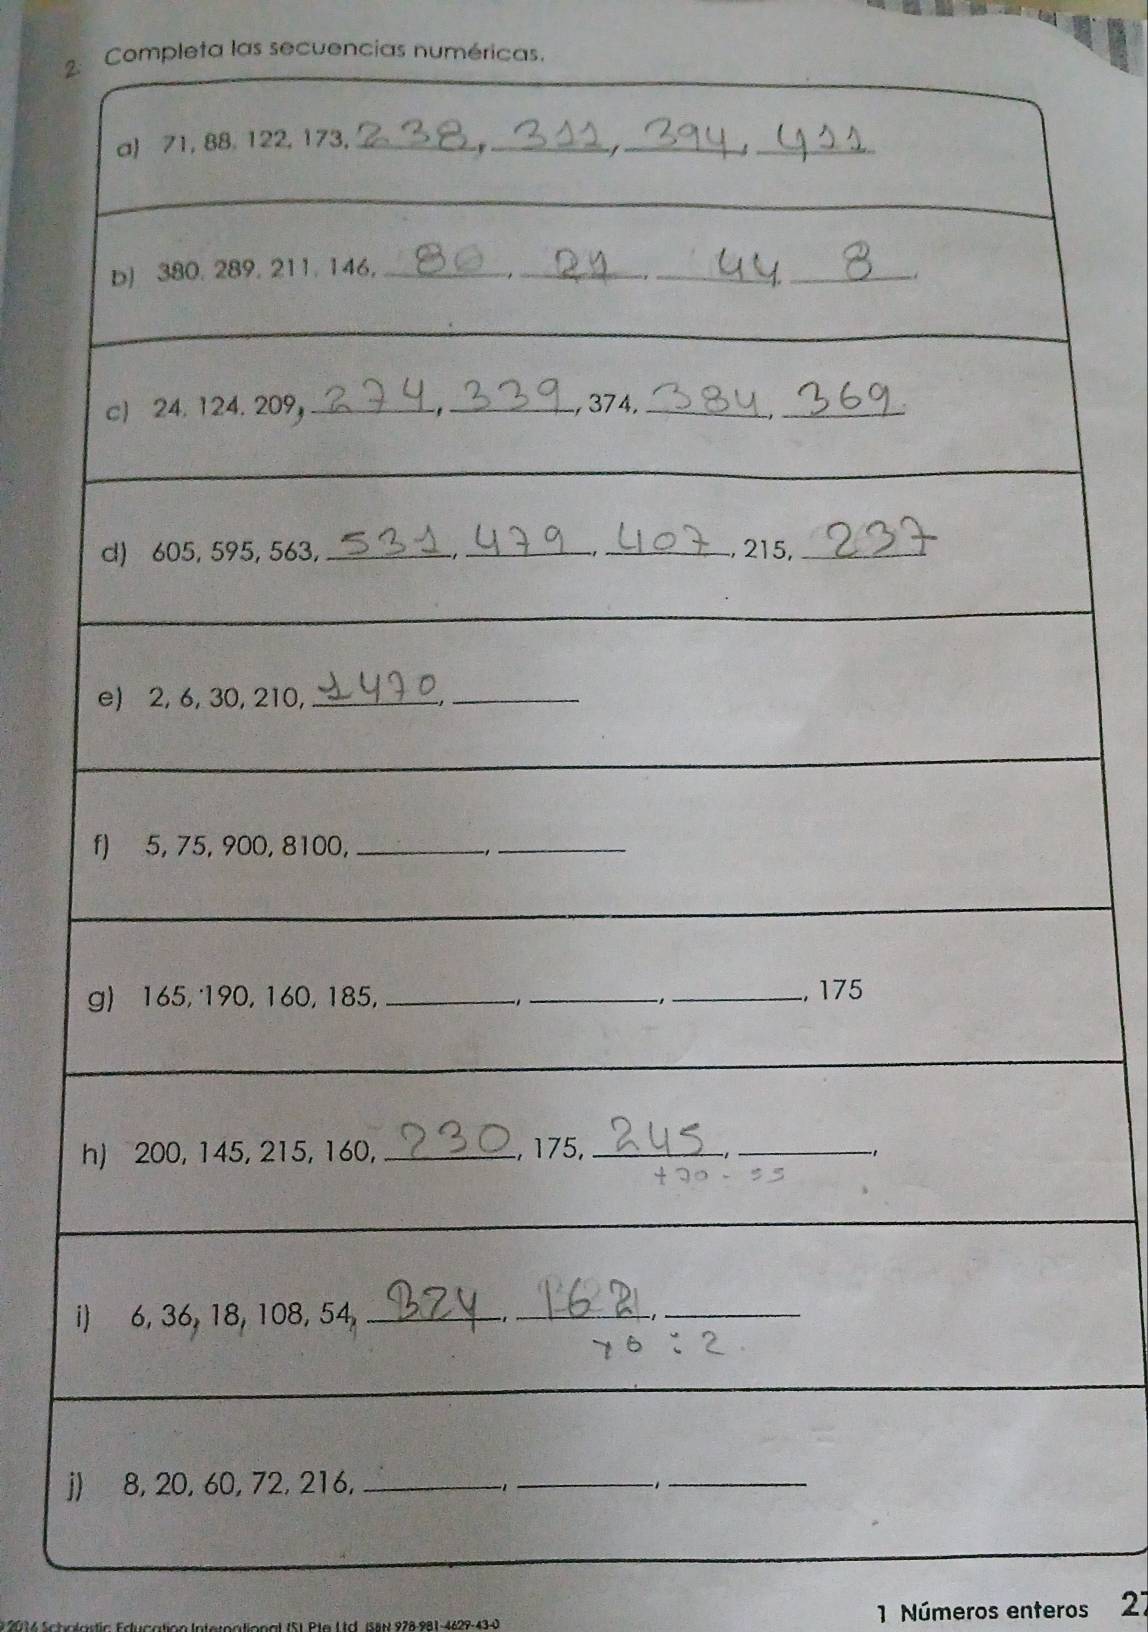 2. Completa las secuencias numéricas.
a) 71, 88, 122, 173, 238, 311, 394, 411
b) 380, 289, 211, 146, 80, 29, 44, 8
c) 24, 124, 209, 274, 339, 374, 384, 369
d) 605, 595, 563, 531, 479, 407, 215, 237
e) 2, 6, 30, 210, 1470, ____
f) 5, 75, 900, 8100, ____, ____
g) 165, 190, 160, 185, ____, ____, ____, 175
h) 200, 145, 215, 160, 230, 175, 245, ____,
+70 - 55
i) 6, 36, 18, 108, 54, 324, 162, ____
x6 : 2
j) 8, 20, 60, 72, 216, ____, ____, ____
1 Números enteros 27
2016 Scholastic Education International (S) Pte Ltd ISBN 978-981-4629-43-0